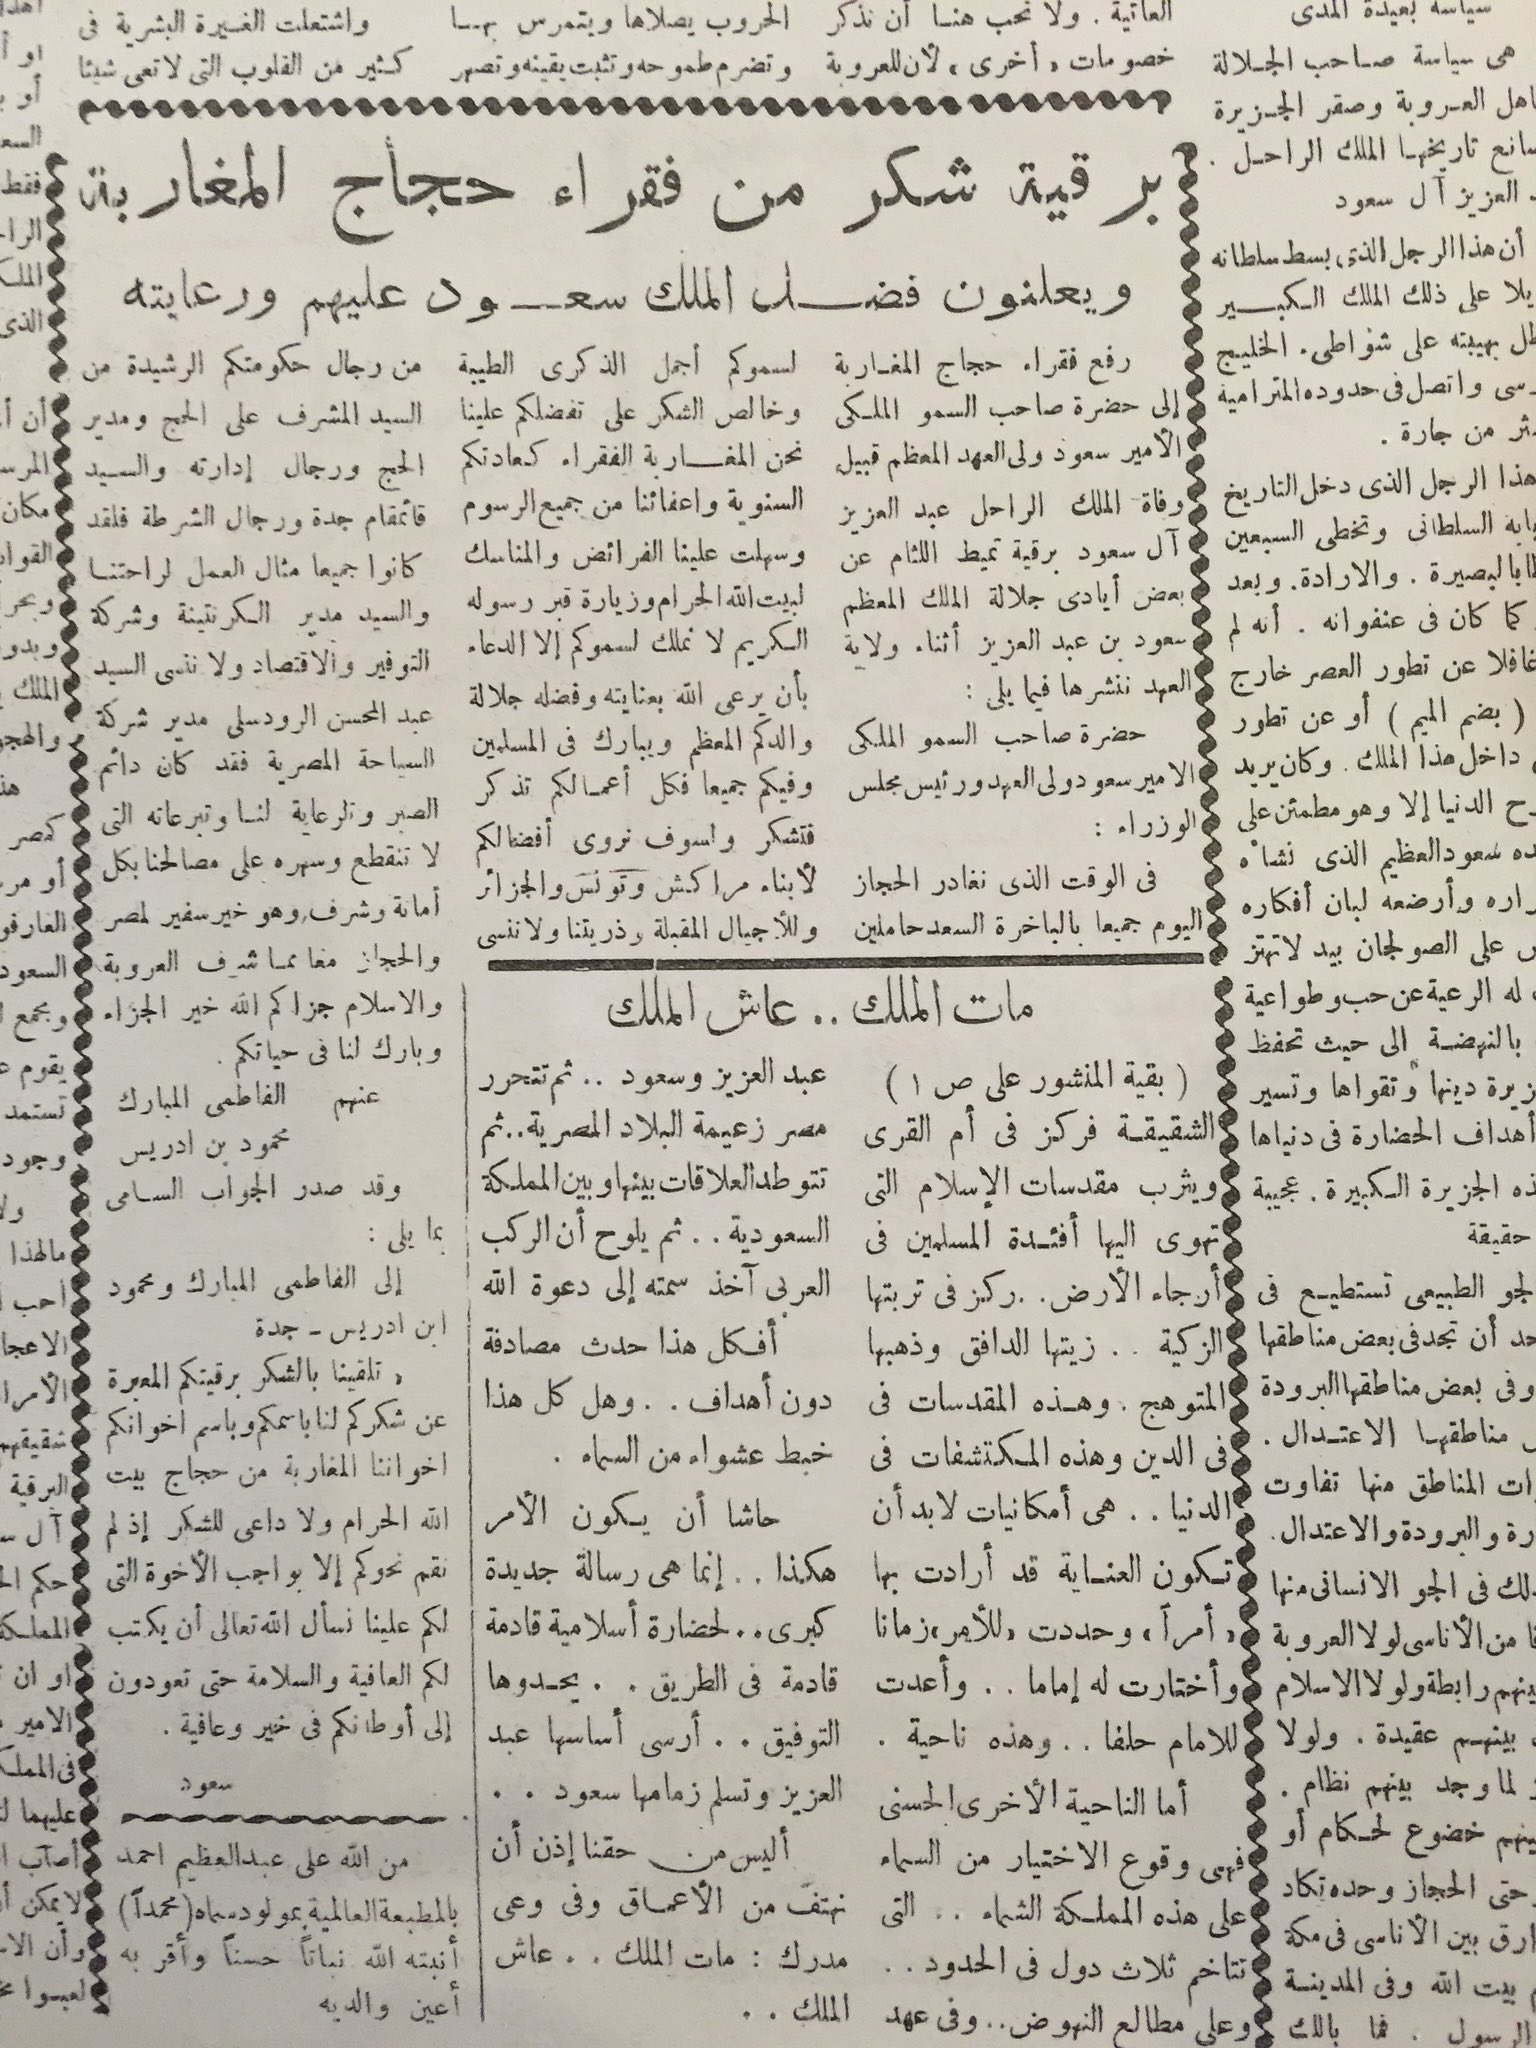 سياسة بعيدة المدى
هى سياسة صاحب الجلالة
العروبة وصقر الجزيرة
تاريخها الملك الراحل .
العزيز آل سعود
أن هذا الرجل الذى بسط سلطانه
على ذلك الملك الكبير
بهيبته على شواطىء الخليج
واتصل فى حدوده المترامية
من جارة .
هذا الرجل الذى دخل التاريخ
السلطانى وتخطى السبعين
والارادة . وبعد
كما كان فى عنفوانه . أنه لم
غافلا عن تطور العصر خارج
( بضم الميم ) أو عن تطور
داخل هذا الملك . وكان يريد
الدنيا إلا وهو مطمئن على
سعود العظيم الذى نشأه
وأرضعه لبان أفكاره
على الصولجان بيد لا تهتز
له الرعية عن حب وطواعية
بالنهضة الى حيث تحفظ
دينها وتقواها وتسير
أهداف الحضارة فى دنياها
الجزيرة الكبيرة . عجيبة
حقيقة
الطبيعى تستطيع فى
أن تجد فى بعض مناطقها
وفى بعض مناطقها البرودة
مناطقها الاعتدال .
المناطق منها تفاوت
والبرودة والاعتدال .
فى الجو الانسانى منها
من الأناسى لولا العروبة
رابطة ولولا الاسلام
بينهم عقيدة . ولولا
لما وجد بينهم نظام .
خضوع لحكام أو
حتى الحجاز وحده تكاد
بين الأناسى فى مكة
بيت الله وفى المدينة
الرسول . فما بالك
العاتية . ولا نحب هنا أن نذكر
خصومات « أخرى » لأن للعروبة
الحروب يصلاها ويتمرس بها
وتضرم طموحه وتثبت يقينه وتصهر
واشتعلت الغيرة البشرية فى
كثير من القلوب التى لا تعى شيئا
برقية شكر من فقراء حجاج المغاربة
ويعلنون فضل الملك سعود عليهم ورعايته
رفع فقراء حجاج المغاربة
إلى حضرة صاحب السمو الملكى
الأمير سعود ولى العهد المعظم قبيل
وفاة الملك الراحل عبد العزيز
آل سعود برقية تميط اللثام عن
بعض أيادى جلالة الملك المعظم
سعود بن عبد العزيز أثناء ولاية
العهد ننشرها فيما يلى :
حضرة صاحب السمو الملكى
الامير سعود ولى العهد ورئيس مجلس
الوزراء :
فى الوقت الذى نغادر الحجاز
اليوم جميعا بالباخرة السعد حاملين
لسموكم أجمل الذكرى الطيبة
وخالص الشكر على تفضلكم علينا
نحن المغاربة الفقراء كعادتكم
السنوية واعفائنا من جميع الرسوم
وسهلت علينا الفرائض والمناسك
لبيت الله الحرام وزيارة قبر رسوله
الكريم لا نملك لسموكم إلا الدعاء
بأن يرعى الله بعنايته وفضله جلالة
والدكم المعظم ويبارك فى المسلمين
وفيكم جميعا فكل أعمالكم تذكر
فتشكر ولسوف نروى أفضالكم
لأبناء مراكش وتونس والجزائر
وللأجيال المقبلة وذريتنا ولا ننسى
من رجال حكومتكم الرشيدة من
السيد المشرف على الحج ومدير
الحج ورجال إدارته والسيد
قائمقام جدة ورجال الشرطة فلقد
كانوا جميعا مثال العمل لراحتنا
والسيد مدير الكرنتينة وشركة
التوفير والاقتصاد ولا ننسى السيد
عبد المحسن الرودسلى مدير شركة
السياحة المصرية فقد كان دائم
الصبر والرعاية لنا وتبرعاته التى
لا تنقطع وسهره على مصالحنا بكل
أمانة وشرف وهو خير سفير لمصر
والحجاز معا مما شرف العروبة
والاسلام جزاكم الله خير الجزاء
وبارك لنا فى حياتكم .
عنهم الفاطمى المبارك
محمود بن ادريس
وقد صدر الجواب السامى
بما يلى :
إلى الفاطمى المبارك ومحمود
ابن ادريس - جدة
« تلقينا بالشكر برقيتكم المعبرة
عن شكركم لنا باسمكم وباسم اخوانكم
اخواننا المغاربة من حجاج بيت
الله الحرام ولا داعى للشكر إذ لم
نقم نحوكم إلا بواجب الأخوة التى
لكم علينا نسأل الله تعالى أن يكتب
لكم العافية والسلامة حتى تعودون
إلى أوطانكم فى خير وعافية .
سعود
من الله على عبد العظيم احمد
بالمطبعة العالمية بمولود سماه (محمداً)
أنبته الله نباتاً حسناً وأقر به
أعين والديه
مات الملك .. عاش الملك
( بقية المنشور على ص ١ )
الشقيقة فركز فى أم القرى
ويثرب مقدسات الإسلام التى
تهوى اليها أفئدة المسلمين فى
أرجاء الأرض . . ركز فى تربتها
الزكية . . زيتها الدافق وذهبها
المتوهج . وهذه المقدسات فى
فى الدين وهذه المكتشفات فى
الدنيا . . هى أمكانيات لابد أن
تكون العناية قد أرادت بها
« أمراً » وحددت « للأمر » زمانا
وأختارت له إماما . . وأعدت
للامام حلفا . . وهذه ناحية .
أما الناحية الأخرى الحسنى
فهى وقوع الاختيار من السماء
على هذه المملكة الشماء . . التى
تتاخم ثلاث دول فى الحدود . .
وعلى مطالع النهوض . . وفى عهد
عبد العزيز وسعود . . ثم تتحرر
مصر زعيمة البلاد المصرية . . ثم
تتوطد العلاقات بينها وبين المملكة
السعودية . . ثم يلوح أن الركب
العربى آخذ سمته إلى دعوة الله
أفكل هذا حدث مصادفة
دون أهداف . . وهل كل هذا
خبط عشواء من السماء .
حاشا أن يكون الأمر
هكذا . . إنما هى رسالة جديدة
كبرى . . لحضارة أسلامية قادمة
قادمة فى الطريق . . يحدوها
التوفيق . . أرسى أساسها عبد
العزيز وتسلم زمامها سعود . .
أليس من حقنا إذن أن
نهتف من الأعماق وفى وعى
مدرك : مات الملك . . عاش
الملك . .